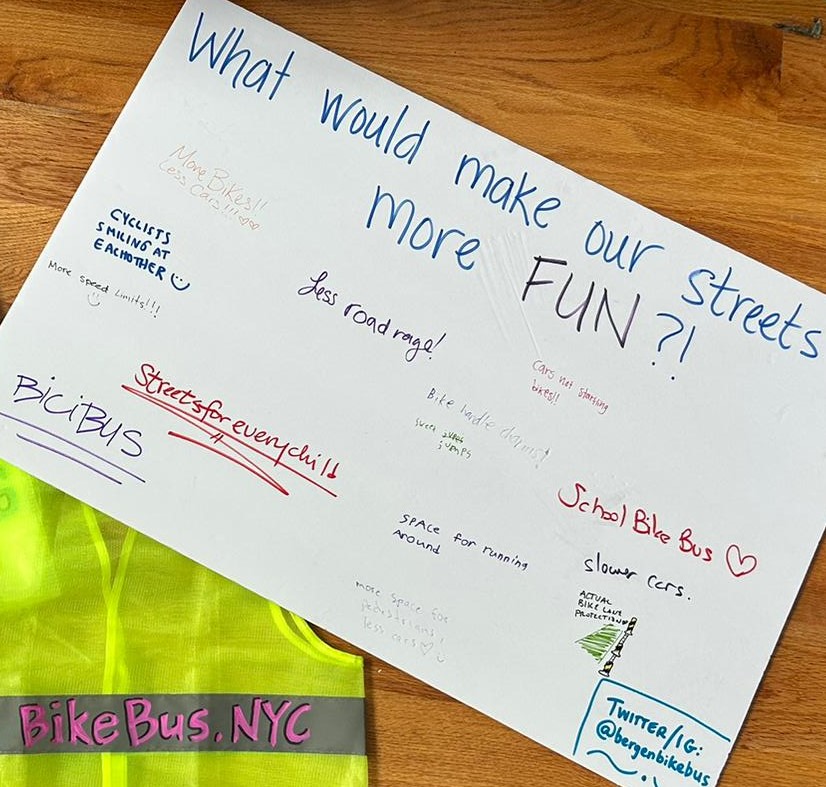 What would make our streets
more FUN?!
More Bikes!!
Less Cars!!!
CYCLISTS
SMILING AT
EACHOTHER
More speed limits!!!
Less road rage!
Cars not
bikes!!
Bike handle charms!
sweet
jumps
BiCiBUS
Streets for every child
School Bike Bus
SPACE for running
Around
slower cars.
ACTUAL
BIKE LANE
PROTECTION
more space for
pedestrians!
less cars
TWITTER/IG:
@bergenbikebus
BikeBus.NYC